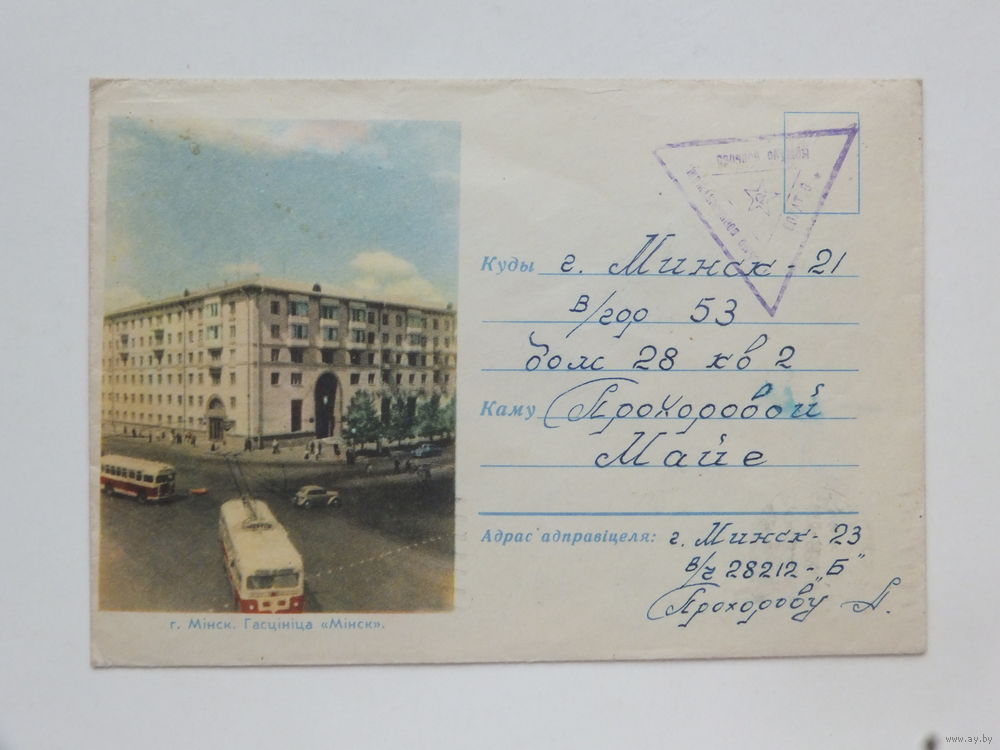 Куды г. Минск - 21
в/гор 53
дом 28 кв 2
Каму Прохоровой
Майе
Адрас адпраўіцеля: г. Минск - 23
в/ч 28212 - "Б"
Прохорову А.
г. Мінск. Гасцініца «Мінск».
www.ay.by